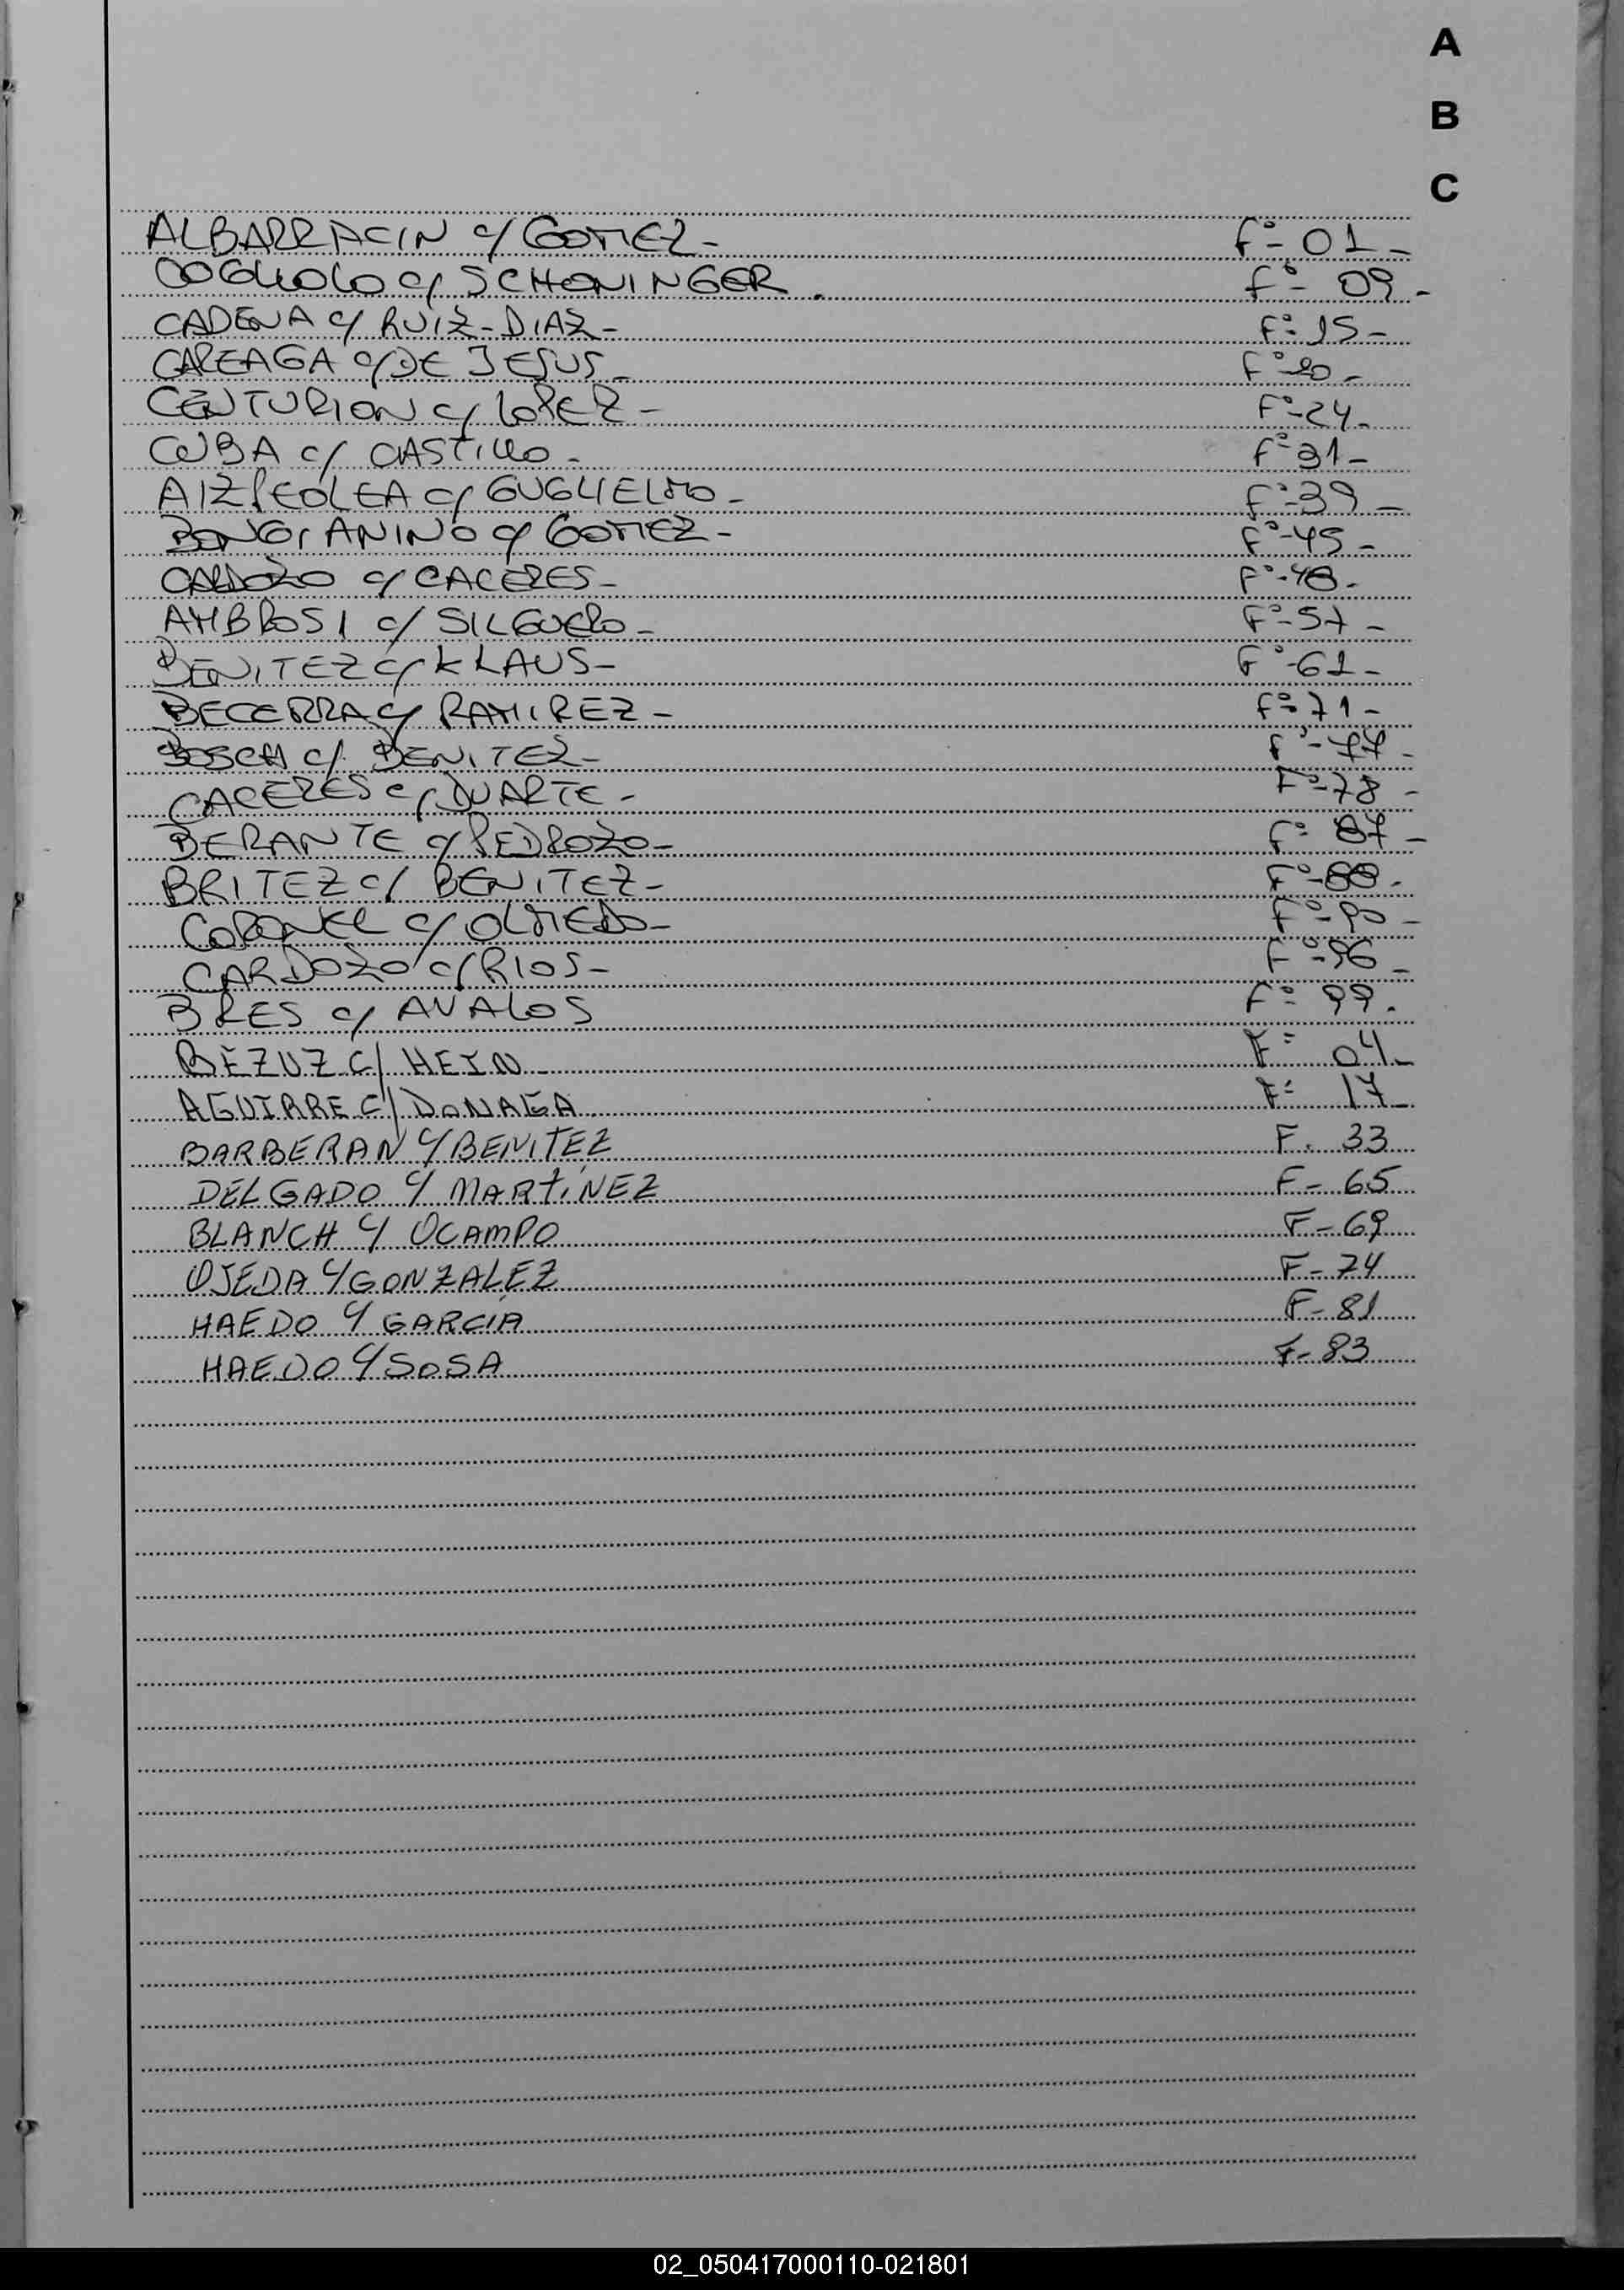 A
B
C
ALBARRACIN c/ GOMEZ- Fº- 01-
COGLIOLO c/ SCHONINGER. Fº- 09-
CADENA c/ RUIZ-DIAZ- Fº-15-
CAREAGA c/ DE JESUS- Fº-20-
CENTURION c/ LOPEZ- Fº-24-
CUBA c/ CASTILLO- Fº-31-
AIZPEOLEA c/ GUGLIELMO- Fº-39-
BONGIANINO c/ GOMEZ- Fº-45-
CARDOZO c/ CACERES- Fº-48-
AMBROSI c/ SILGUERO- Fº-57-
BENITEZ c/ KLAUS- Fº-61-
BECERRA c/ RAMIREZ- Fº-71-
BOSCH c/ BENITEZ- Fº-77-
CACERES c/ DUARTE- Fº-78-
BERANTE c/ PEDROZO- Fº- 87-
BRITEZ c/ BENITEZ- Fº-88-
CORONEL c/ OLMEDO- Fº-90-
CARDOZO c/ RIOS- Fº-96-
BRES c/ AVALOS Fº- 99-
BEZUZ C/ HEIN Fº 04-
AGUIRRE C/ DONAGA Fº 17-
BARBERAN C/ BENITEZ F. 33
DELGADO C/ MARTINEZ F- 65
BLANCH C/ OCAMPO F-69
OJEDA C/ GONZALEZ F-74
HAEDO C/ GARCIA F-81
HAEDO C/ SOSA F-83
02_050417000110-021801